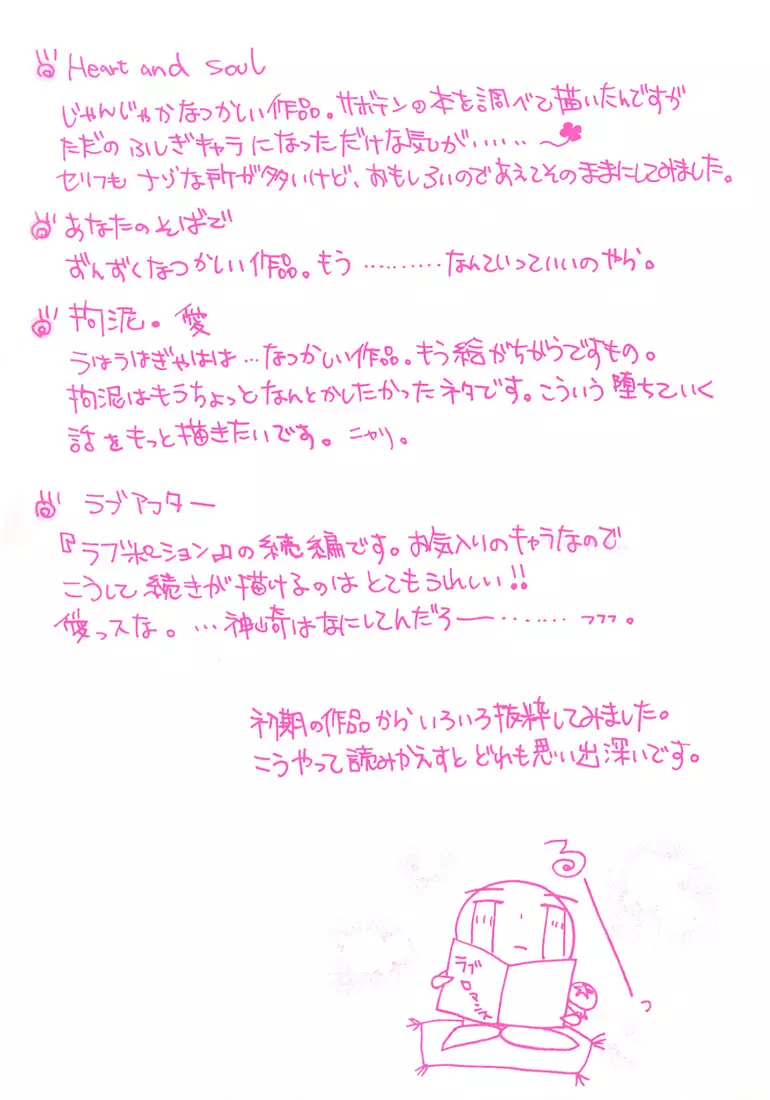 Heart and Soul
じゃんじゃかなつかしい作品。サボテンの本を調べて描いたんですが
ただのふしぎキャラになっただけな気が……
セリフもナゾな所が多いけど、おもしろいのであえてそのままにしてみました。
あなたのそばで
ずんずくなつかしい作品。もう…………なんていっていいのやら。
拘泥。愛
うほうはぎゃはは…なつかしい作品。もう絵がちがうですもの。
拘泥はもうちょっとなんとかしたかったネタです。こういう堕ちていく
話をもっと描きたいです。ニヤリ。
ラブアフター
『ラブポーション』の続編です。お気入りのキャラなので
こうして続きが描けるのはとてもうれしい!!
愛っスな。…神崎はなにしてんだろー……… フフフ。
初期の作品からいろいろ抜粋してみました。
こうやって読みかえすとどれも思い出深いです。
る
っ
ラブ